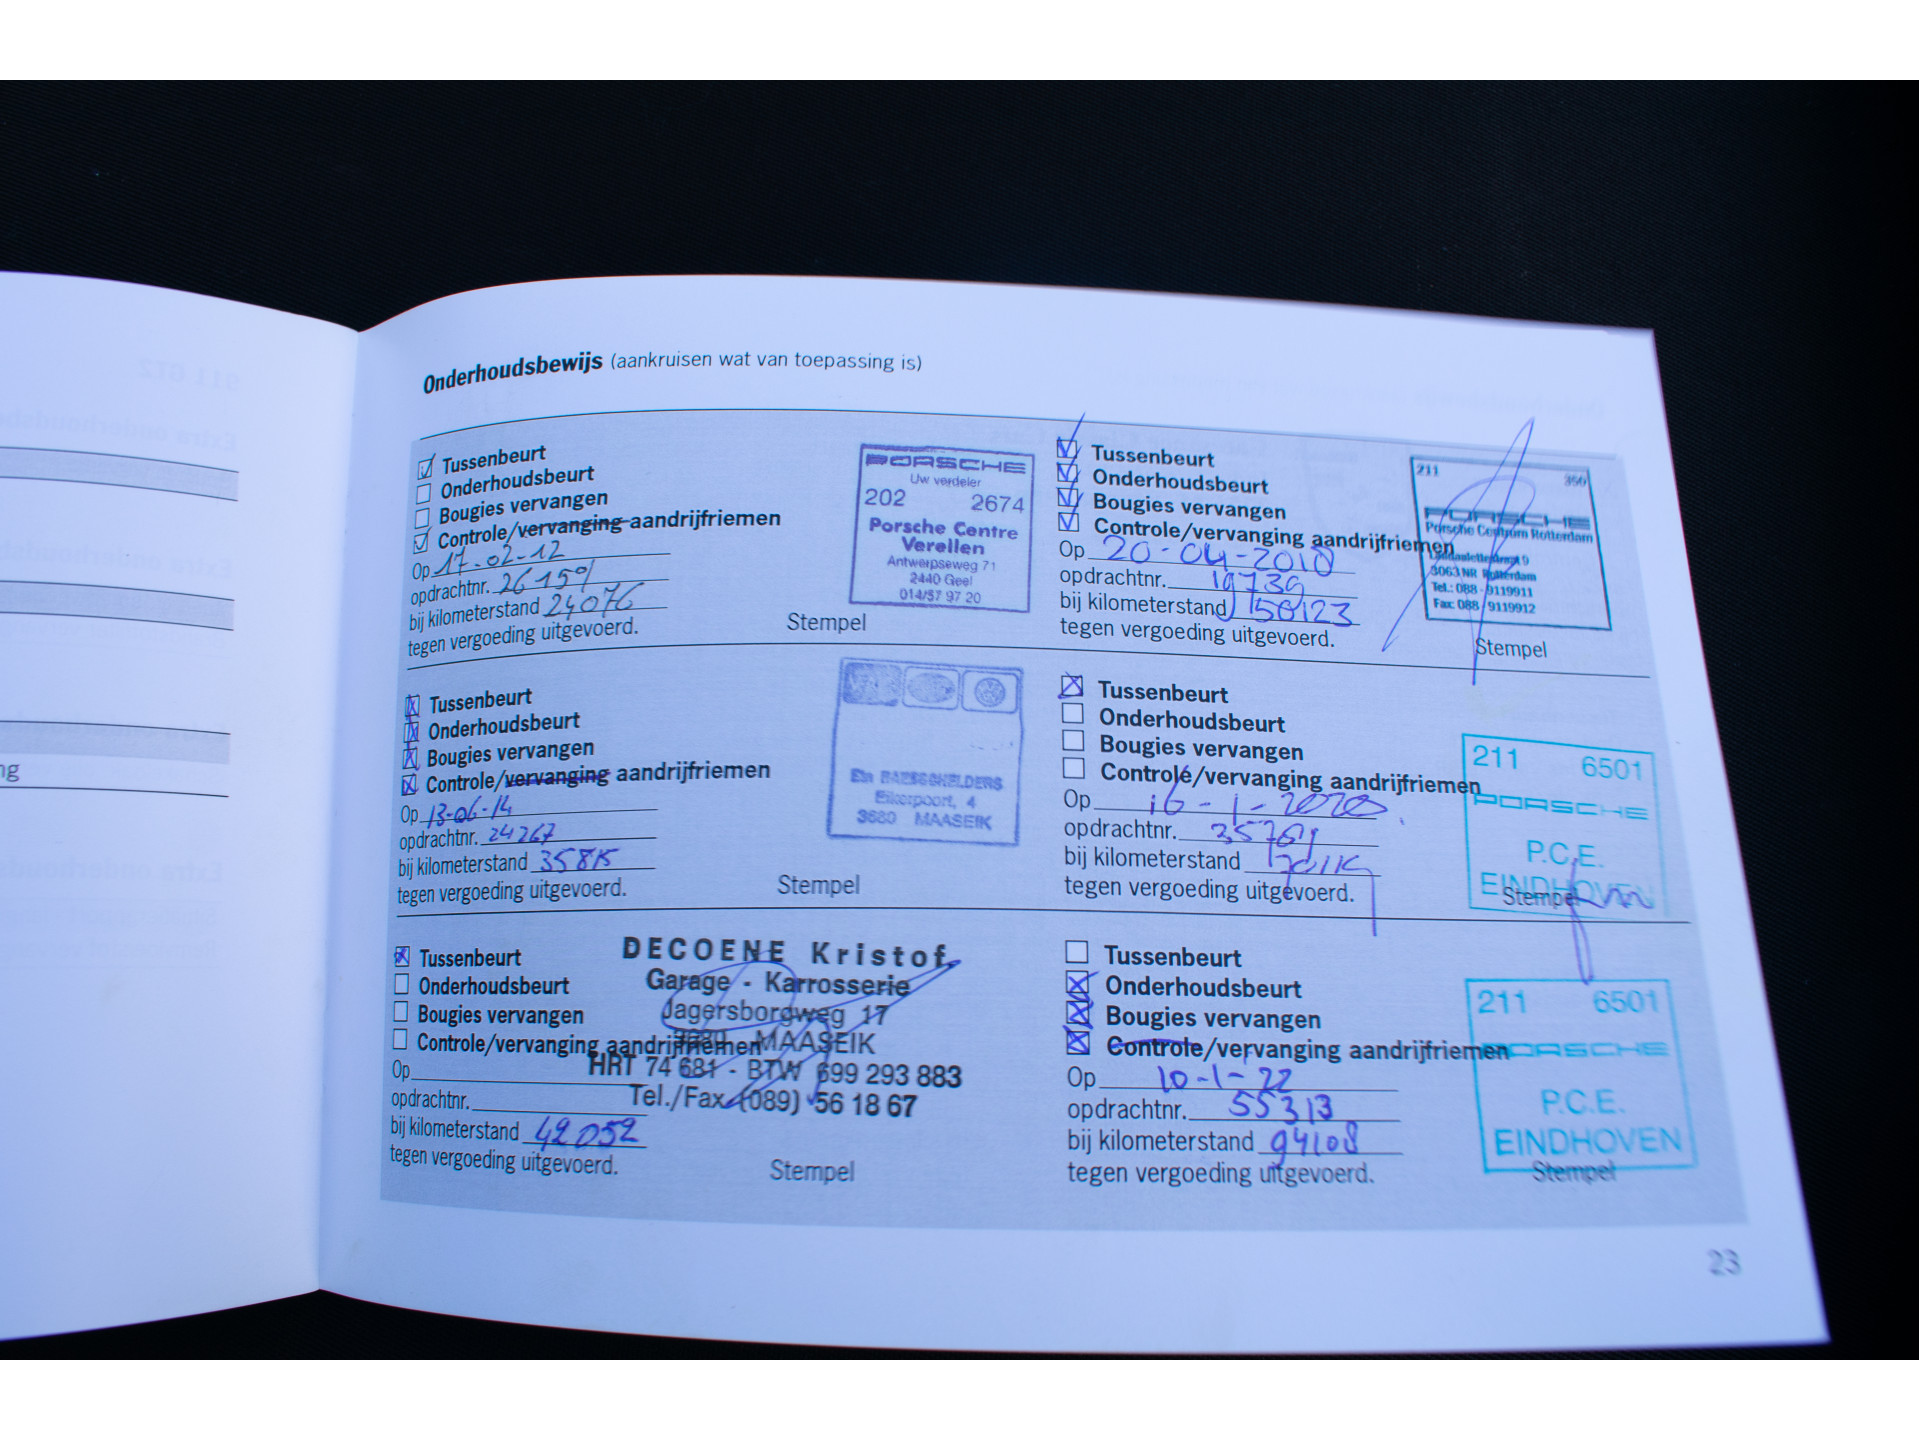 Onderhoudsbewijs (aankruisen wat van toepassing is)
Tussenbeurt
Onderhoudsbeurt
Bougies vervangen
Controle/vervanging aandrijfriemen
Op 17-02-12
opdrachtnr.
bij kilometerstand 24076
tegen vergoeding uitgevoerd.
PORSCHE
Uw verdeler
202 2674
Porsche Centre
Verellen
Antwerpseweg 71
2440 Geel
014/57 97 20
Stempel
Tussenbeurt
Onderhoudsbeurt
Bougies vervangen
Controle/vervanging aandrijfriemen
Op 13-06-14
opdrachtnr. 24267
bij kilometerstand 35815
tegen vergoeding uitgevoerd.
Eikerpoort, 4
3680 MAASEIK
Stempel
Tussenbeurt
Onderhoudsbeurt
Bougies vervangen
Controle/vervanging aandrijfriemen
Op
opdrachtnr.
bij kilometerstand 42052
tegen vergoeding uitgevoerd.
DECOENE Kristof
Garage - Karrosserie
Jagersborgweg 17
3680 MAASEIK
HRT 74 681 - BTW 699 293 883
Tel./Fax (089) 56 18 67
Stempel
Tussenbeurt
Onderhoudsbeurt
Bougies vervangen
Controle/vervanging aandrijfriemen
Op 20-04-2018
opdrachtnr. 19739
bij kilometerstand 50123
tegen vergoeding uitgevoerd.
211 350
PORSCHE
Porsche Centrum Rotterdam
3063 NR Rotterdam
Tel.: 088 - 9119911
Fax: 088 - 9119912
Stempel
Tussenbeurt
Onderhoudsbeurt
Bougies vervangen
Controle/vervanging aandrijfriemen
Op 16-1-2020
opdrachtnr.
bij kilometerstand
tegen vergoeding uitgevoerd.
211 6501
PORSCHE
P.C.E.
EINDHOVEN
Stempel
Tussenbeurt
Onderhoudsbeurt
Bougies vervangen
Controle/vervanging aandrijfriemen
Op 10-1-22
opdrachtnr. 55313
bij kilometerstand 94108
tegen vergoeding uitgevoerd.
211 6501
PORSCHE
P.C.E.
EINDHOVEN
Stempel
23